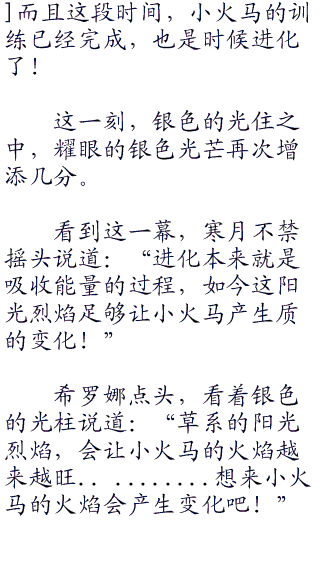 ]而且这段时间，小火马的训
练已经完成，也是时候进化
了！
这一刻，银色的光住之
中，耀眼的银色光芒再次增
添几分。
看到这一幕，寒月不禁
摇头说道：“进化本来就是
吸收能量的过程，如今这阳
光烈焰足够让小火马产生质
的变化！”
希罗娜点头，看着银色
的光柱说道：“草系的阳光
烈焰，会让小火马的火焰越
来越旺.. ........想来小火
马的火焰会产生变化吧！”